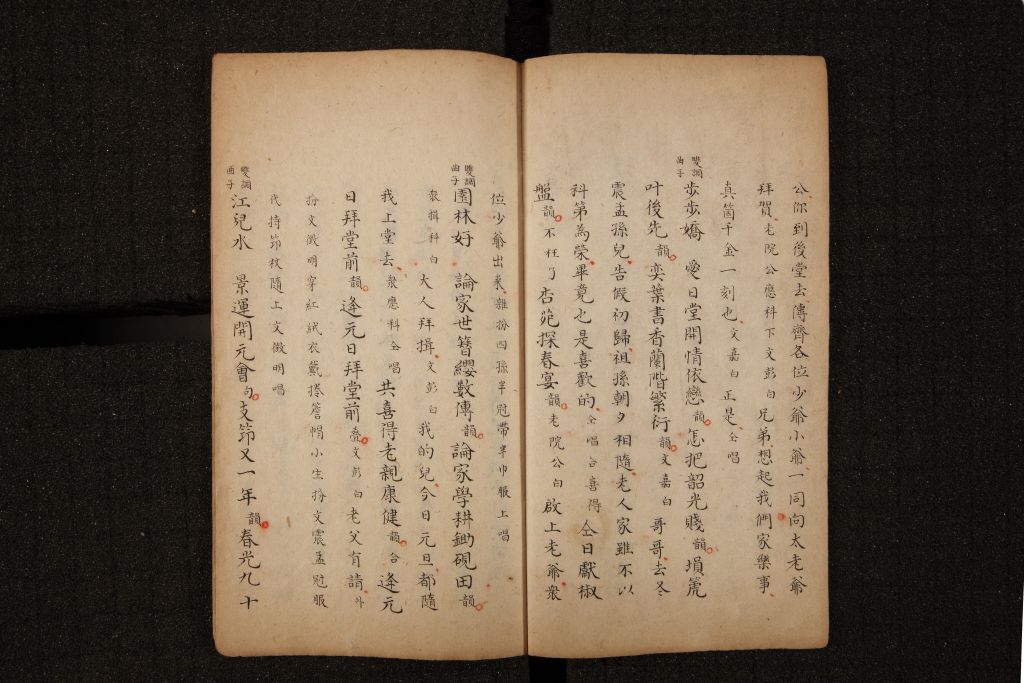 公你到後堂去傳齊各位少爺小爺一同向太老爺
拜賀老院公應科下文彭白兄弟想起我們家樂事
真箇千金一刻也文嘉白正是仝唱
雙調
曲子
步步嬌 愛日堂開情依戀韻怎把韶光賤韻塤箎
叶後先韻奕葉書香蘭階繁衍韻文嘉白哥哥去冬
震孟孫兒告假初歸祖孫朝夕相隨老人家雖不以
科第為榮畢竟也是喜歡的仝唱合喜得仝日獻椒
盤韻不枉了杏苑探春宴韻老院公白啟上老爺衆
位少爺出來雜扮四孫半冠帶半巾服上唱
雙調
曲子
園林好 論家世簪纓數傳韻論家學耕鋤硯田韻
衆揖科白大人拜揖文彭白我的兒今日元旦都隨
我上堂去衆應科仝唱共喜得老親康健韻合逢元
日拜堂前韻逢元日拜堂前疊文彭白老父有請外
扮文徵明穿紅絨衣戴捲簷帽小生扮文震孟冠服
代持節杖隨上文徵明唱
雙調
曲子
江兒水 景運開元會句支節又一年韻春光九十